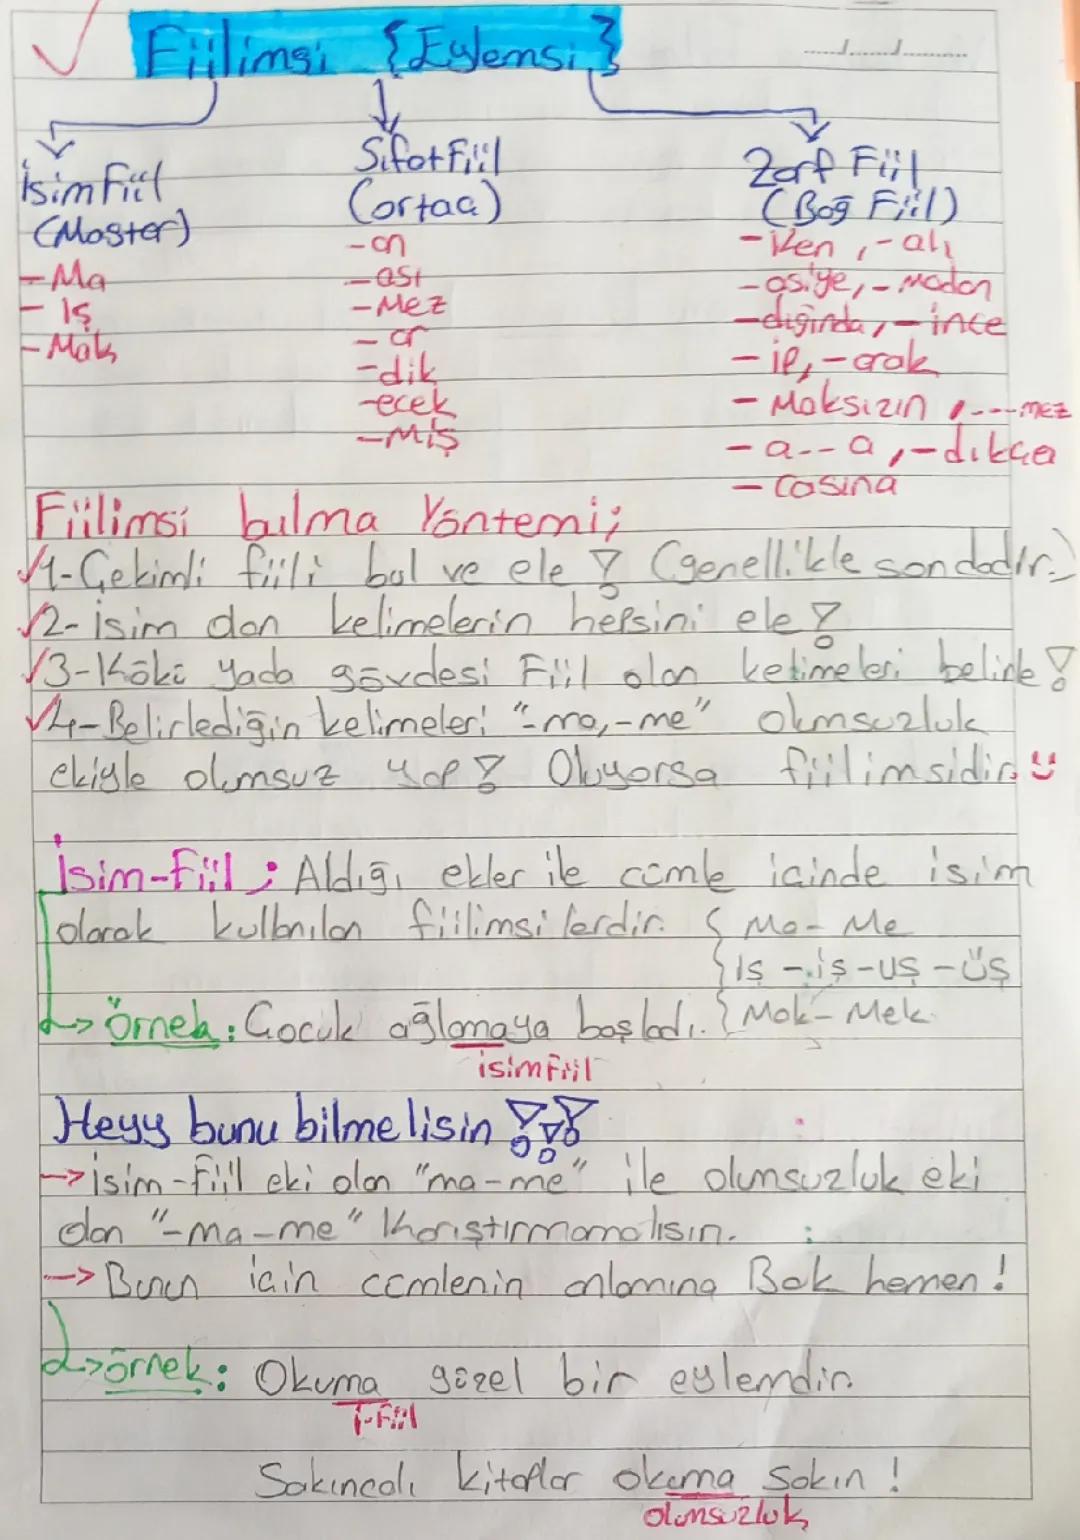 Fiilimsi {Eylemsi}
İsim Fiil
(Mastar)
-Ma
- Iş
- Mak
Sıfat Fiil
(ortaç)
-an
-ası
-Mez
-ar
-dik
-ecek
-Miş
Zarf Fiil
(Bağ Fiil)
-iken, -alı
-asıye, - madan
-dığında, - ince
- ip, - arak
- Maksızın , ---mez
- a -- a , -dıkça
- casına
Fiilimsi bulma Yöntemi;
1-Çekimli fiili bul ve ele ! (genellikle sondadır.)
2- İsim olan kelimelerin hepsini ele !
3-Kökü yada gövdesi Fiil olan kelimeleri belirle !
4-Belirlediğin kelimeleri "-ma,-me" olumsuzluk
ekiyle olumsuz yap ! Oluyorsa fiilimsidir.
İsim-Fiil ; Aldığı ekler ile cümle içinde isim
olarak kullanılan fiilimsilerdir. { Ma - Me
{Iş - iş - uş - üş
{Mak - Mek
örnek : Çocuk ağlamaya başladı.
isim Fiil
Heyy bunu bilmelisin !!!
→ İsim-Fiil eki olan "ma-me" ile olumsuzluk eki
olan "-ma-me" Karıştırmamalısın.
→ Bunun için cümlenin anlamına Bak hemen!
örnek : Okuma güzel bir eylemdir.
İ-Fiil
Sakıncalı kitaplar okuma sakın !
olumsuzluk